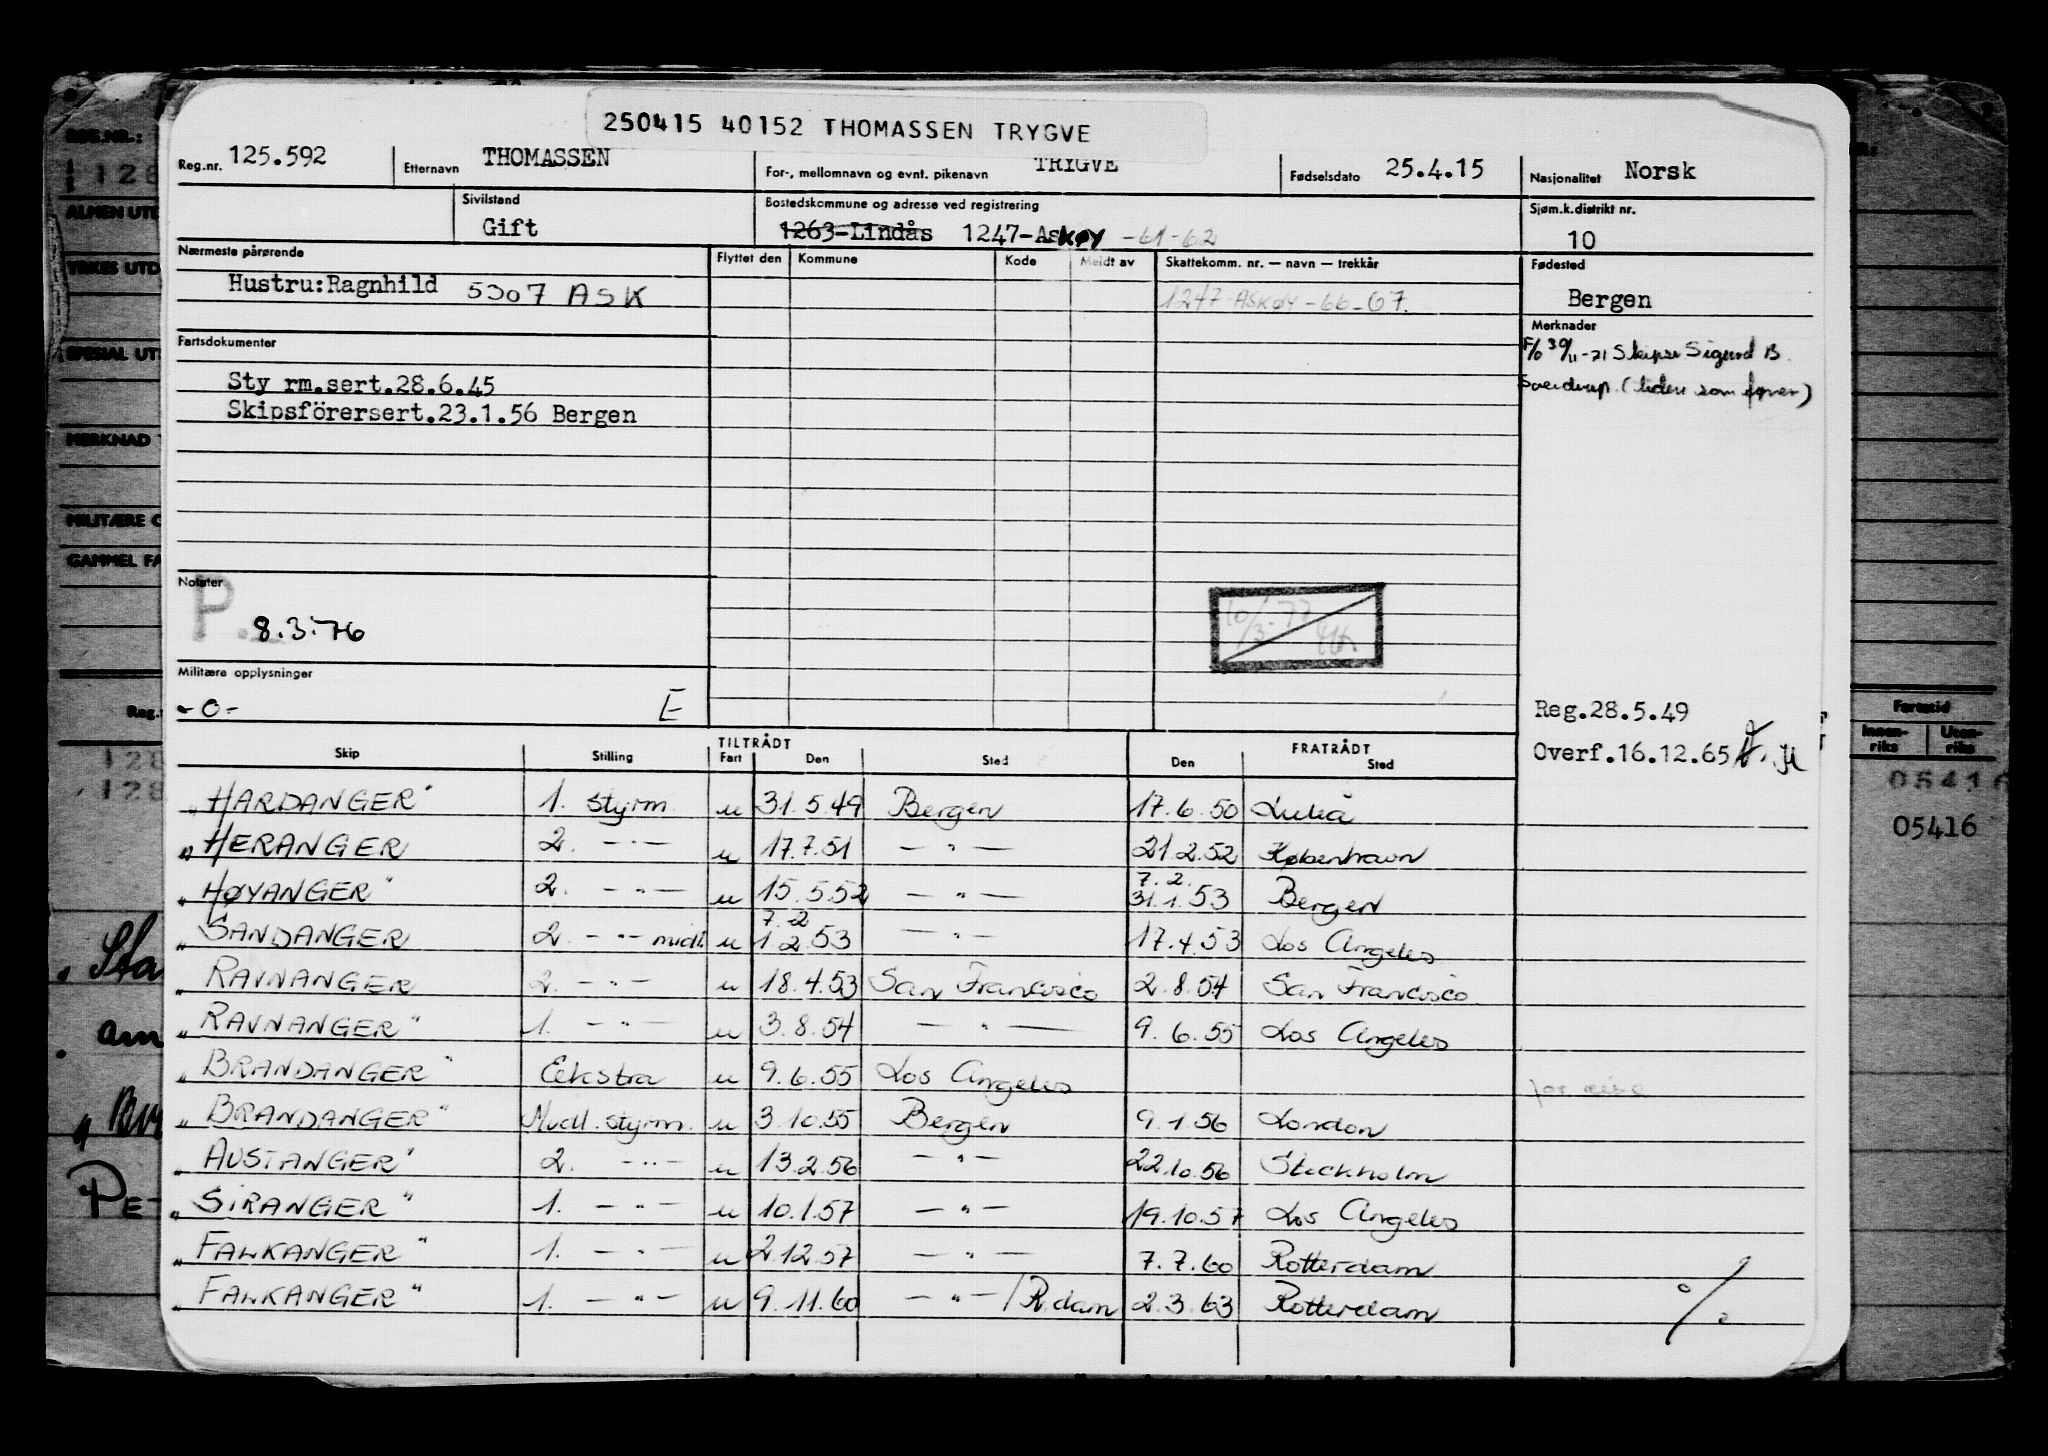 250415 40152 THOMASSEN TRYGVE
Reg.nr. 125.592 Etternavn THOMASSEN For-, mellomnavn og evnt. pikenavn TRYGVE Fødselsdato 25.4.15 Nasjonalitet Norsk
Sivilstand Gift Bostedskommune og adresse ved registrering 1263-Lindås 1247-Askøy -61-62 Sjøm.k.distrikt nr. 10
Nærmeste pårørende Flyttet den Kommune Kode Meldt av Skattekomm. nr. — navn — trekkår Fødested
Hustru:Ragnhild 5307 ASK 1247 ASKØY -66-67. Bergen
Merknader
F/o 30/11-71 Skipsr Sigurd B.
Sverdrup. (tiden som fører)
Fartsdokumenter
Sty rm.sert.28.6.45
Skipsförersert.23.1.56 Bergen
Notater
P. 8.3.76
10/3-77
Militære opplysninger
-0- E
Reg.28.5.49
Overf.16.12.65
TILTRÅDT FRATRÅDT
Skip Stilling Fart Den Sted Den Sted
„HARDANGER" 1. styrm. u 31.5.49 Bergen 17.6.50 Luleå
„HERANGER 2. — " — u 17.7.51 — " — 21.2.52 København
„HØYANGER" 2. — " — u 15.5.52 — " — 7.2. 31.1.53 Bergen
„SANDANGER 2. — " — midl. u 7.2 1.2.53 — " — 17.4.53 Los Angeles
„RAVNANGER 2. — " — u 18.4.53 San Francisco 2.8.54 San Francisco
„RAVNANGER" 1. — " — u 3.8.54 — " — 9.6.55 Los Angeles
„BRANDANGER" Ekstra u 9.6.55 Los Angeles for reise
„BRANDANGER" Midl. styrm. u 3.10.55 Bergen 9.1.56 London
„AUSTANGER" 2. — " — u 13.2.56 — " — 22.10.56 Stockholm
„SIRANGER" 1. — " — u 10.1.57 — " — 19.10.57 Los Angeles
„FALKANGER" 1. — " — u 2.12.57 — " — 7.7.60 Rotterdam
„FALKANGER" 1. — " — u 9.11.60 — " — / R.dam 2.3.63 Rotterdam
%
REG.NR.:
128
ALMEN UTD
YRKES UTD
SPESIAL UTD
MERKNAD
MILITÆRE O
GAMMEL FA
Reg.
128
128
Sta
am
PE
Fartstid
Innen-riks Uten-riks
05416
05416